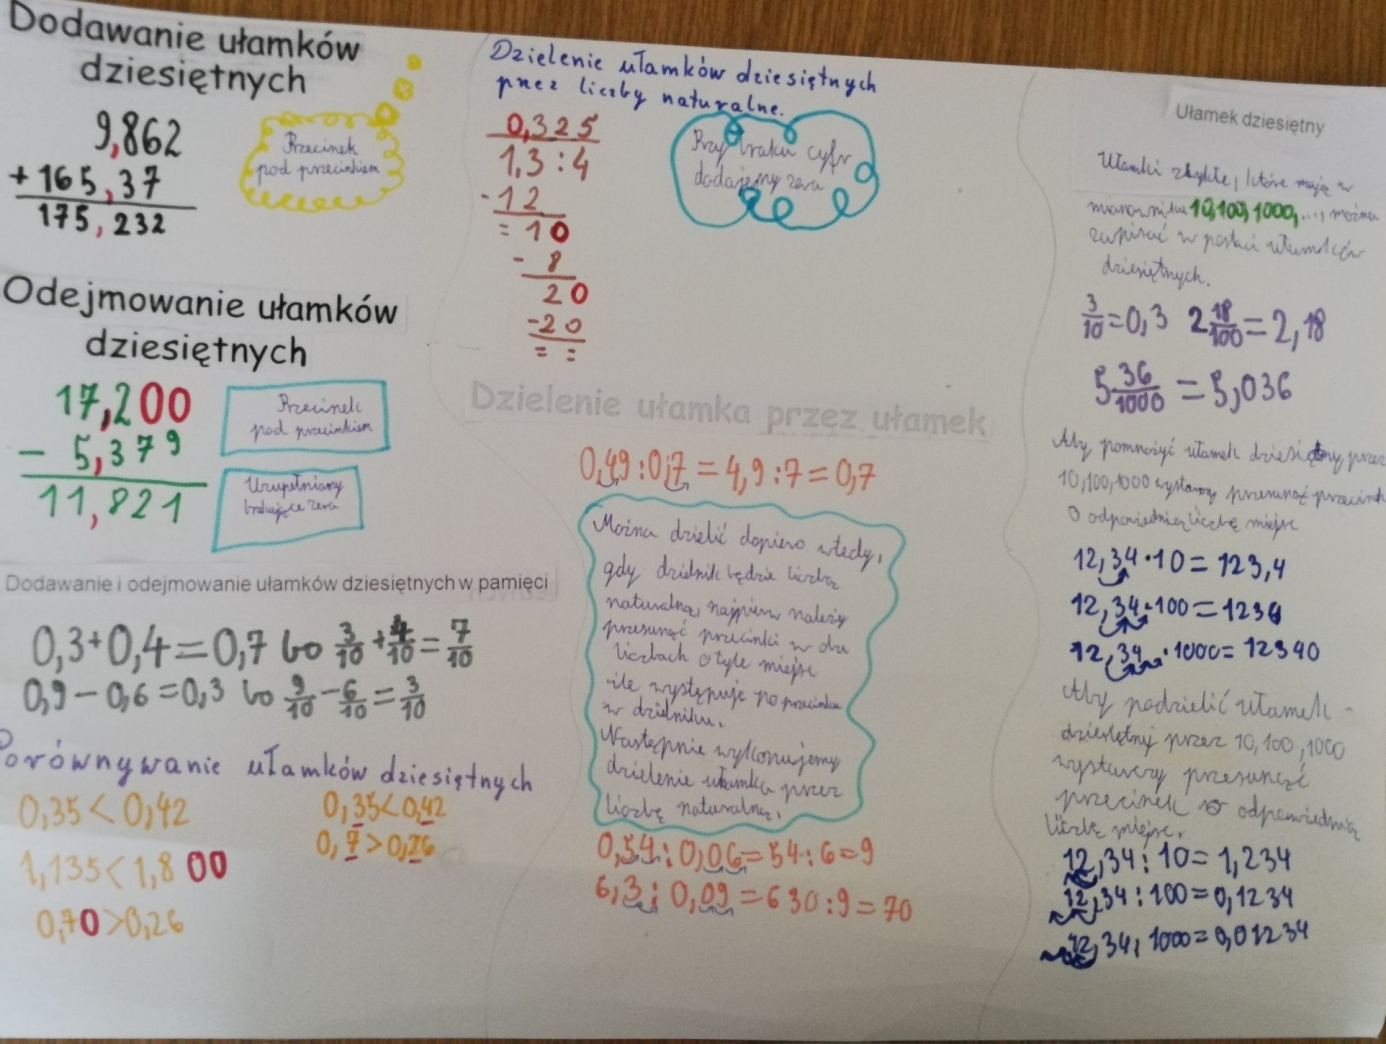 Dodawanie ułamków
dziesiętnych
9,862
+ 165,37
175,232
Przecinek
pod przecinkiem
Odejmowanie ułamków
dziesiętnych
17,200
- 5,379
11,821
Przecinek
pod przecinkiem
Uzupełniamy
brakujące zera
Dodawanie i odejmowanie ułamków dziesiętnych w pamięci
0,3+0,4=0,7 bo 3/10 + 4/10 = 7/10
0,9-0,6=0,3 bo 9/10 - 6/10 = 3/10
Porównywanie ułamków dziesiętnych
0,35<0,42
1,135<1,800
0,70>0,26
0,35<0,42
0,7>0,26
Dzielenie ułamków dziesiętnych
przez liczby naturalne.
0,325
1,3:4
-12
=10
- 8
20
-20
= =
Przy braku cyfr
dodajemy zera
Dzielenie ułamka przez ułamek
0,49:0,7=4,9:7=0,7
Można dzielić dopiero wtedy,
gdy dzielnik będzie liczbą
naturalną, najpierw należy
przesunąć przecinki w obu
liczbach o tyle miejsc
ile występuje po przecinku
w dzielniku.
Następnie wykonujemy
dzielenie ułamka przez
liczbę naturalną.
0,54:0,06=54:6=9
6,3:0,09=630:9=70
Ułamek dziesiętny
Ułamki zwykłe, które mają w
mianowniku 10,100,1000,..., można
zapisać w postaci ułamków
dziesiętnych.
3/10=0,3 2 18/100=2,18
5 36/1000=5,036
Aby pomnożyć ułamek dziesiętny przez
10,100,1000 wystarczy przesunąć przecinek
o odpowiednią liczbę miejsc
12,34·10=123,4
12,34·100=1234
12,34·1000=12340
Aby podzielić ułamek
dziesiętny przez 10,100,1000
wystarczy przesunąć
przecinek o odpowiednią
liczbę miejsc.
12,34:10=1,234
12,34:100=0,1234
12,34:1000=0,01234